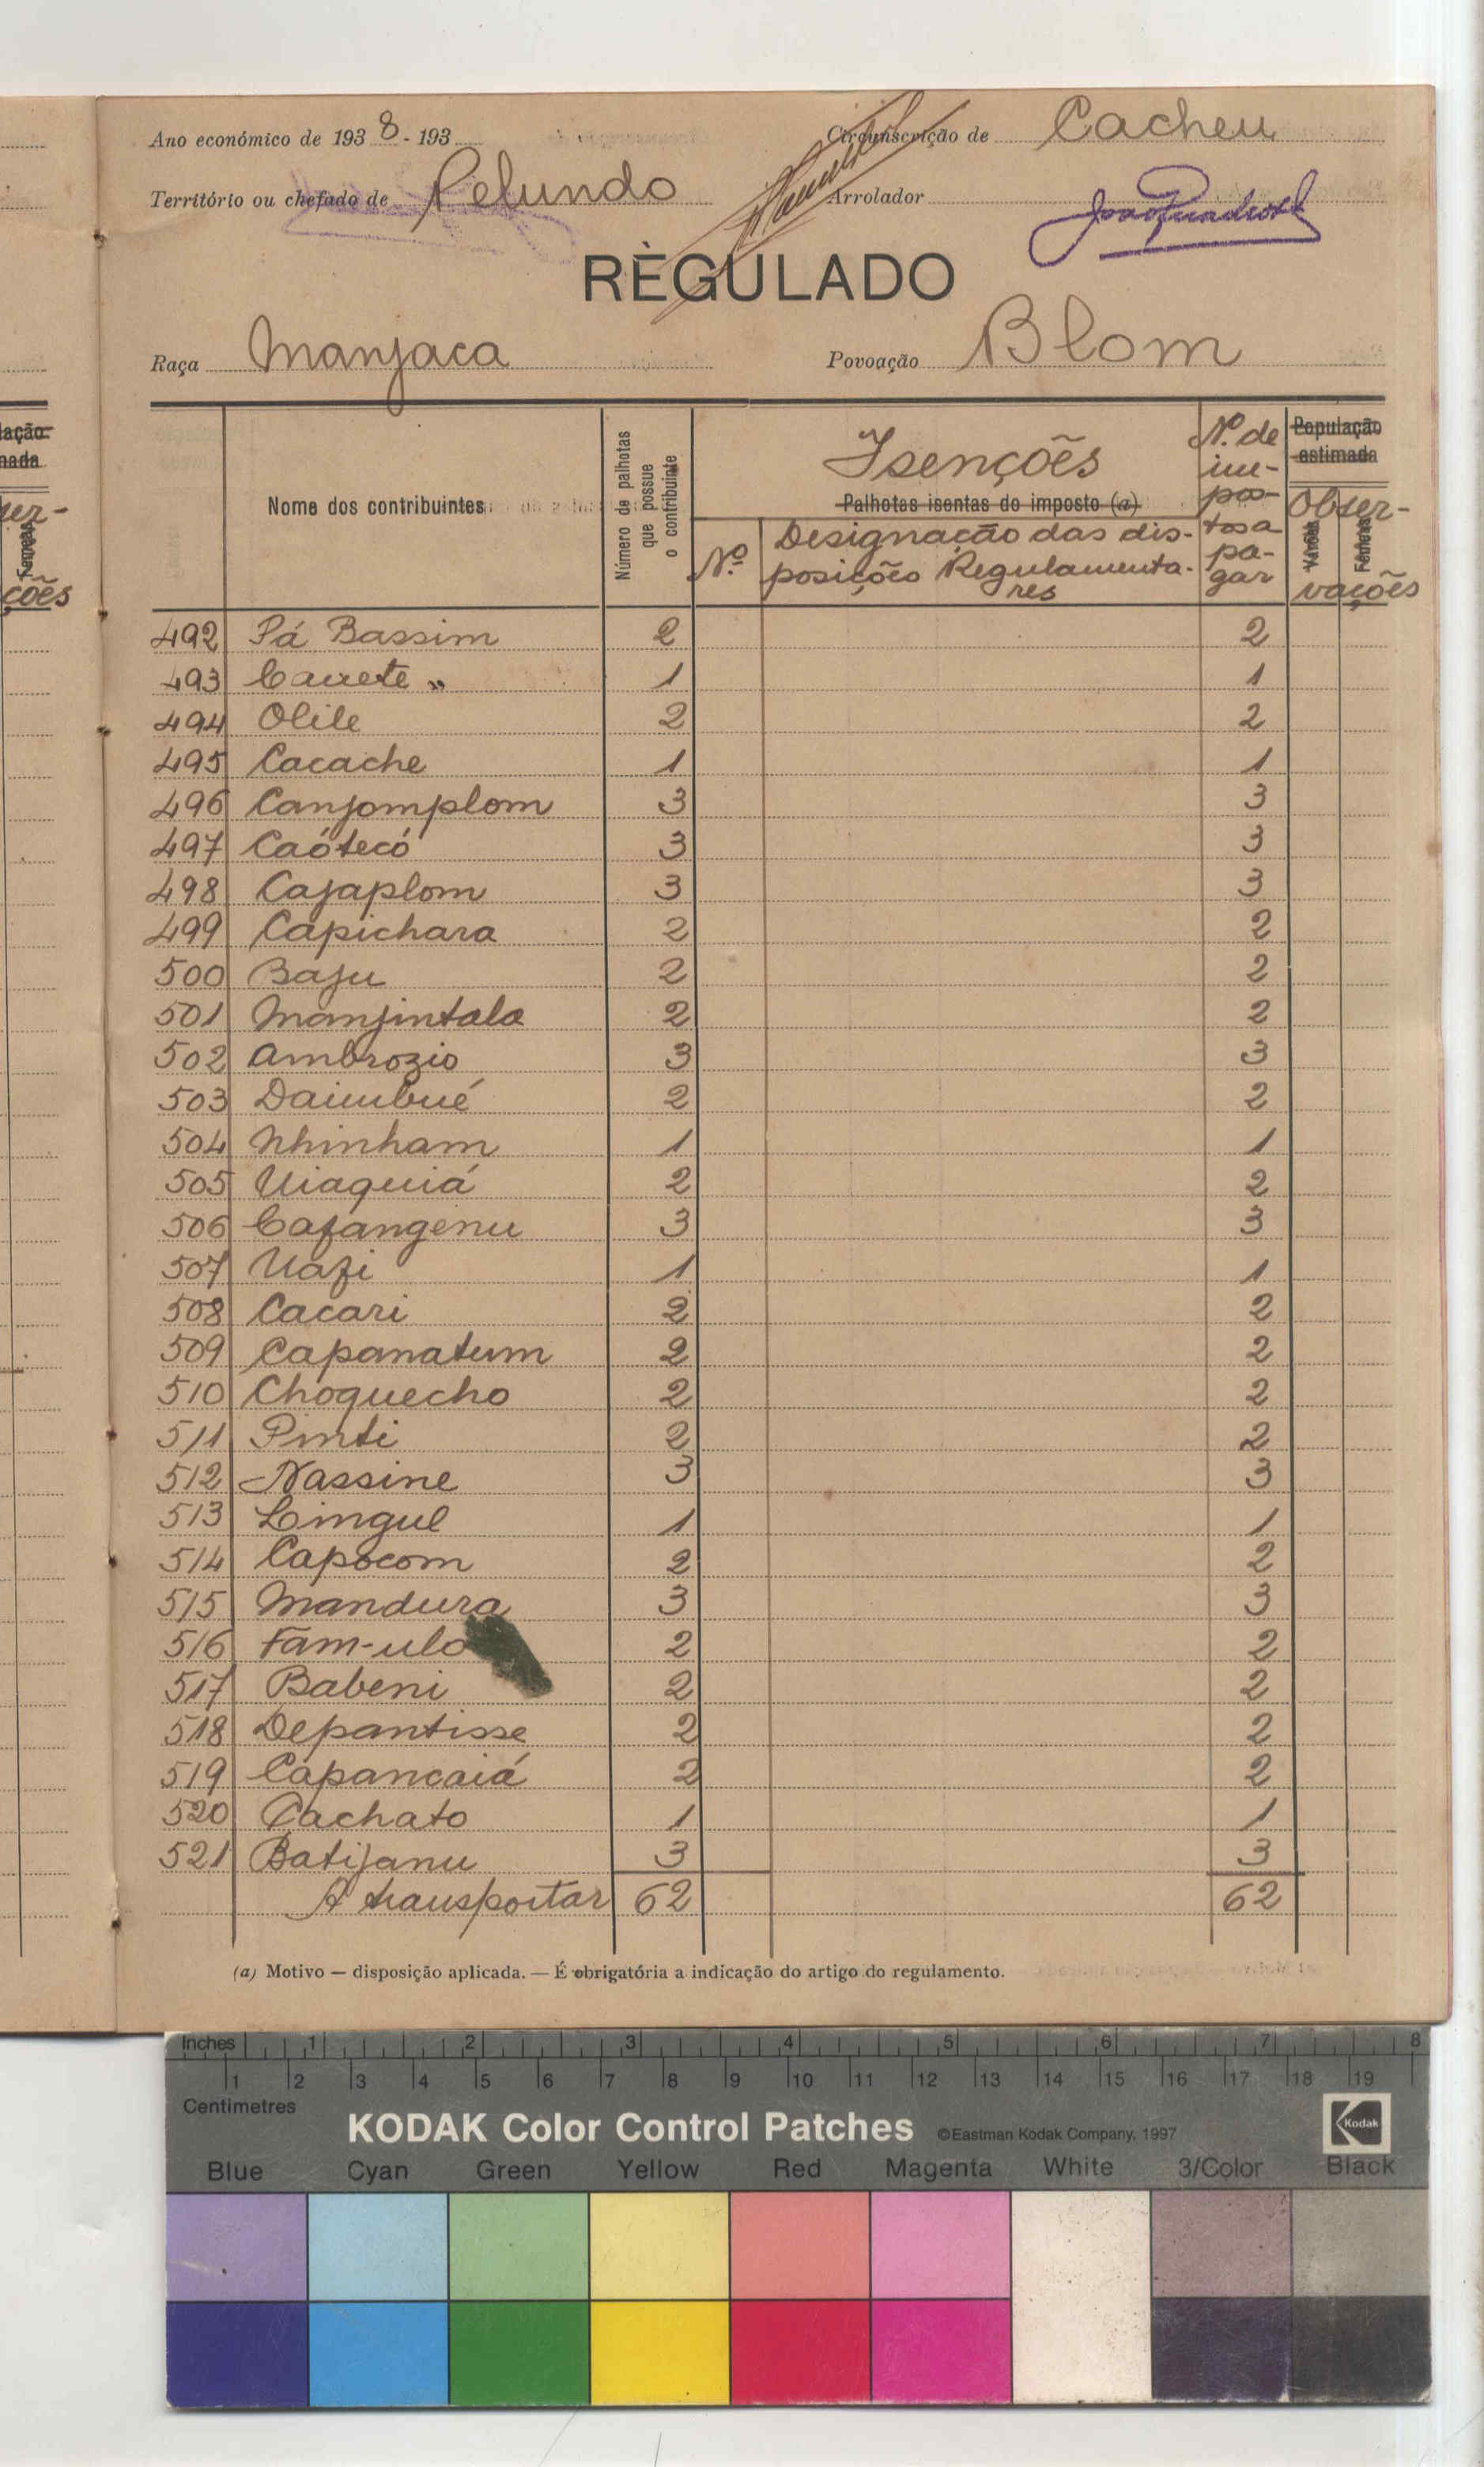 Ano económico de 1938-193
Circunscrição de Cacheu
Território ou chefado de Pelundo
Arrolador
REGULADO
Raça Manjaca
Povoação Blom
Nome dos contribuintes
Número de palhotas que possue o contribuinte
Isenções
Palhotas isentas do imposto (a)
Nº
Designação das disposições Regulamentares
Nº de impostos a pagar
População estimada
Observações
Varões
Femeas
492 Pá Bassim 2 2
493 Cauete " 1 1
494 Olile 2 2
495 Cacache 1 1
496 Canjomplom 3 3
497 Caótecó 3 3
498 Cajaplom 3 3
499 Capichara 2 2
500 Baju 2 2
501 Manjintala 2 2
502 Ambrozio 3 3
503 Daimbué 2 2
504 Nhinham 1 1
505 Uiaquiá 2 2
506 Cafangenu 3 3
507 Uazi 1 1
508 Cacari 2 2
509 Capanatum 2 2
510 Choquecho 2 2
511 Pinti 2 2
512 Nassine 3 3
513 Lingul 1 1
514 Capocom 2 2
515 Mandura 3 3
516 Fam-ulo 2 2
517 Babeni 2 2
518 Depantisse 2 2
519 Capancaiá 2 2
520 Cachato 1 1
521 Batijanu 3 3
A transportar 62 62
(a) Motivo — disposição aplicada. — É obrigatória a indicação do artigo do regulamento.
ação
ada
ções
Femeas
Inches 1 2 3 4 5 6 7 8
1 2 3 4 5 6 7 8 9 10 11 12 13 14 15 16 17 18 19
Centimetres
KODAK Color Control Patches ©Eastman Kodak Company, 1997 Kodak
Blue Cyan Green Yellow Red Magenta White 3/Color Black